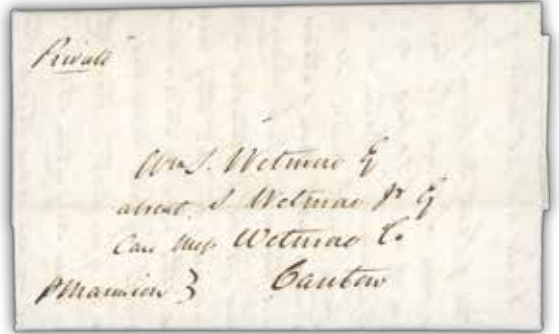 Private
Wm S. Wetmore Eq
absent. S Wetmore Jr Eq
Care Mess Wetmore Co
Canton